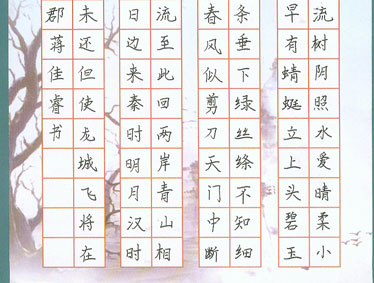 流树阴照水爱晴柔小
早有蜻蜓立上头碧玉
条垂下绿丝绦不知细
春风似剪刀天门中断
流至此回两岸青山相
日边来秦时明月汉时
未还但使龙城飞将在
郡蒋佳睿书